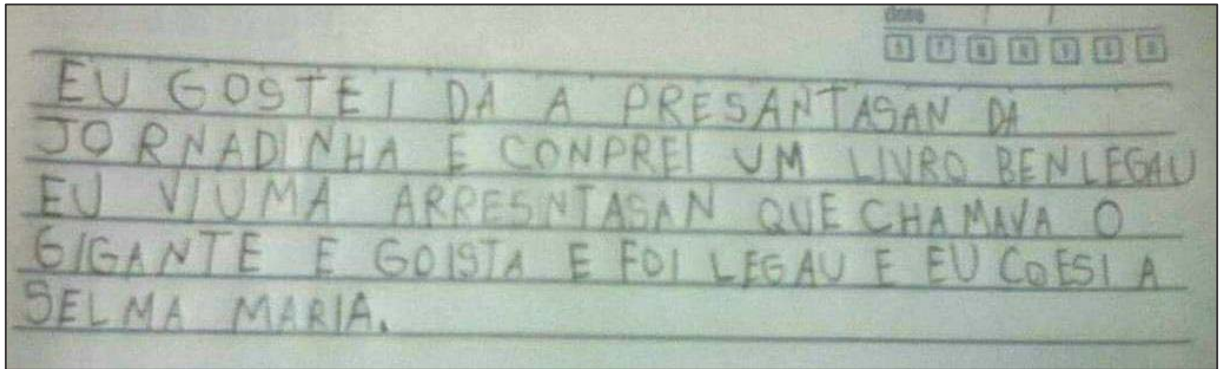 EU GOSTEI DA A PRESANTASAN DA
JORNADINHA E CONPREI UM LIVRO BENLEGAU
EU VIUMA ARRESNTASAN QUE CHAMAVA O
GIGANTE E GOISTA E FOI LEGAU E EU COESI A
SELMA MARIA.